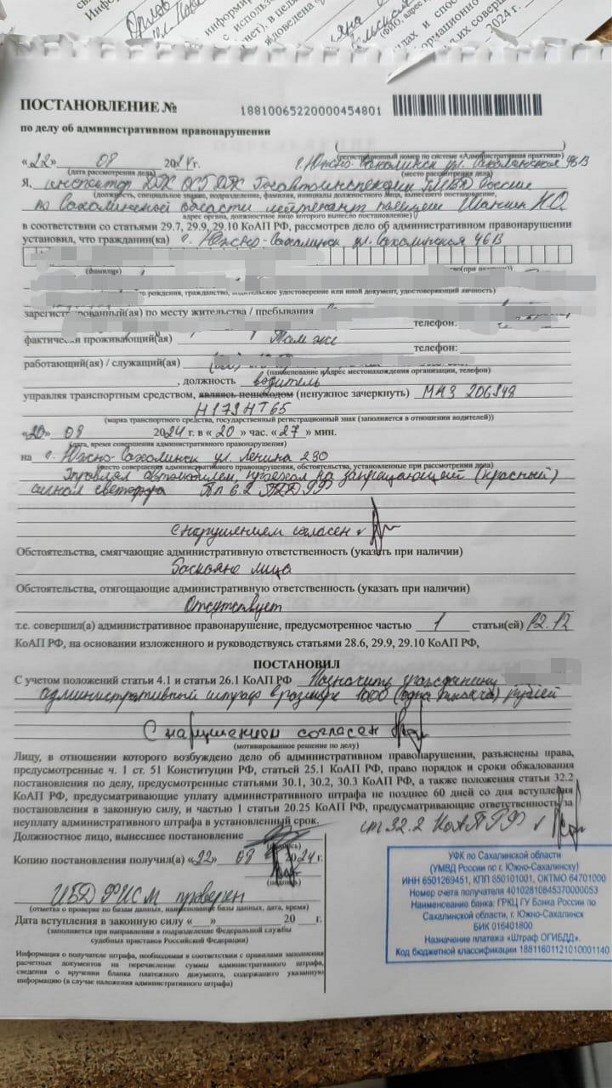 ПОСТАНОВЛЕНИЕ № 18810065220000454801
по делу об административном правонарушении
(регистрационный номер по системе «Административная практика»)
«22» 08 2024 г. г. Южно-Сахалинск ул. Сахалинская 46В
(дата рассмотрения дела) (место рассмотрения)
Я, инспектор ДПС Госавтоинспекции УМВД России
(должность, специальное звание, подразделение, фамилия, инициалы должностного лица, вынесшего постановление,
по Сахалинской области лейтенант полиции Н.О.
адрес органа, должностное лицо которого вынесло постановление)
в соответствии со статьями 29.7, 29.9, 29.10 КоАП РФ, рассмотрев дело об административном правонарушении
установил, что гражданин(ка) г. Южно-Сахалинск ул. Сахалинская 46В
(фамилия)
рождения, гражданство, водительское удостоверение или иной документ, удостоверяющий личность)
зарегистрированный(ая) по месту жительства / пребывания
телефон:
фактически проживающий(ая) Там же
телефон:
работающий(ая) / служащий(ая)
(наименование и адрес местонахождения организации, телефон)
, должность водитель
управляя транспортным средством, являясь пешеходом (ненужное зачеркнуть) МАЗ 206948
Н179НТ65
(марка транспортного средства, государственный регистрационный знак (заполняется в отношении водителей))
«20» 08 2024 г. в «20» час. «27» мин.
(дата, время совершения административного правонарушения)
на г. Южно-Сахалинск ул. Ленина 280
(место совершения административного правонарушения, обстоятельства, установленные при рассмотрении дела)
Управлял автомобилем, проехал на запрещающий (красный)
сигнал светофора П.п 6.2 ПДД РФ
с нарушением согласен
Обстоятельства, смягчающие административную ответственность (указать при наличии)
Раскаяние лица
Обстоятельства, отягощающие административную ответственность (указать при наличии)
Отсутствует
т.е. совершил(а) административное правонарушение, предусмотренное частью 1 статьи(ей) 12.12
КоАП РФ, на основании изложенного и руководствуясь статьями 28.6, 29.9, 29.10 КоАП РФ,
ПОСТАНОВИЛ
С учетом положений статьи 4.1 и статьи 26.1 КоАП РФ Назначить гражданину
административный штраф в размере 1000 (одна тысяча) рублей
С нарушением согласен
(мотивированное решение по делу)
Лицу, в отношении которого возбуждено дело об административном правонарушении, разъяснены права,
предусмотренные ч. 1 ст. 51 Конституции РФ, статьей 25.1 КоАП РФ, право порядок и сроки обжалования
постановления по делу, предусмотренные статьями 30.1, 30.2, 30.3 КоАП РФ, а также положения статьи 32.2
КоАП РФ, предусматривающие уплату административного штрафа не позднее 60 дней со дня вступления
постановления в законную силу, и частью 1 статьи 20.25 КоАП РФ, предусматривающие ответственность за
неуплату административного штрафа в установленный срок.
ст 32.2 КоАП РФ
Должностное лицо, вынесшее постановление
(подпись)
Копию постановления получил(а) «22» 08 2024 г.
(подпись)
ИБД ФИСМ проверен
(отметка о проверке по базам данных, наименование базы данных, дата, время)
Дата вступления в законную силу «___» 20 г.
(заполняется при направлении в подразделение Федеральной службы
судебных приставов Российской Федерации)
Информация о получателе штрафа, необходимая в соответствии с правилами заполнения
расчетных документов на перечисление суммы административного штрафа,
сведения о вручении бланка платежного документа, содержащего указанную
информацию (в случае наложения административного штрафа)
УФК по Сахалинской области
(УМВД России по г. Южно-Сахалинску)
ИНН 6501269451, КПП 650101001, ОКТМО 64701000
Номер счета получателя 40102810845370000053
Наименование банка: ГРКЦ ГУ Банка России по
Сахалинской области, г. Южно-Сахалинск
БИК 016401800
Назначение платежа «Штраф ОГИБДД».
Код бюджетной классификации 18811601121010001140